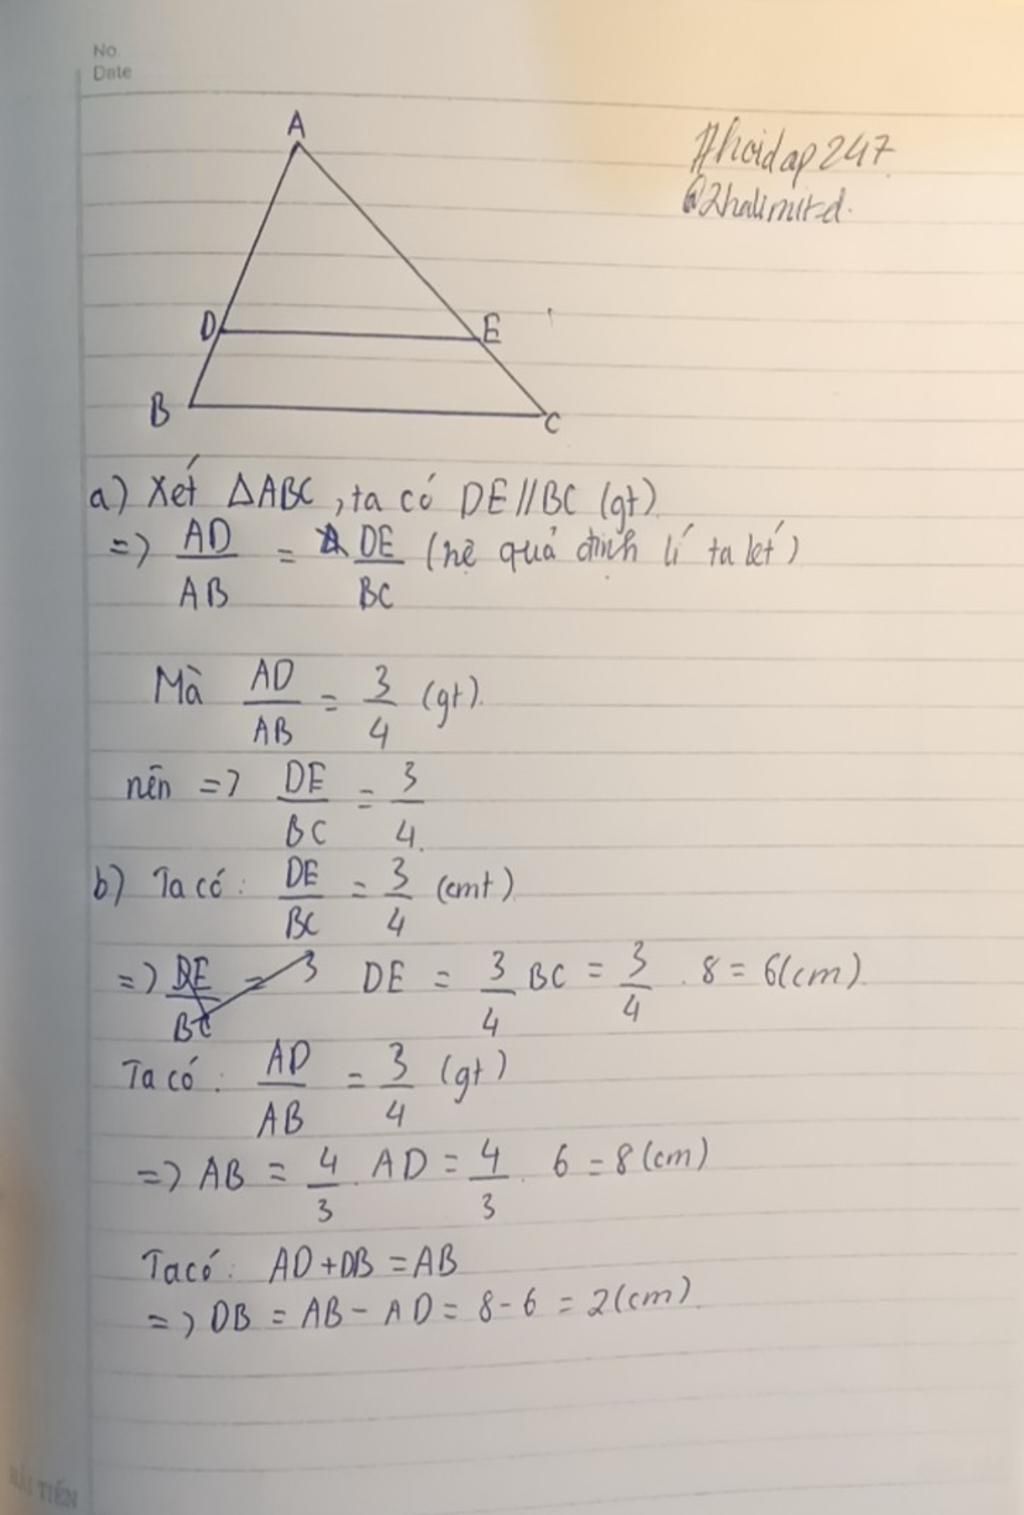 No.
Date
#hoidap247
A
D
E
B
C
a) Xét ΔABC, ta có DE//BC (gt)
=> AD/AB = DE/BC (hệ quả định lí ta lét)
Mà AD/AB = 3/4 (gt).
nên => DE/BC = 3/4.
b) Ta có: DE/BC = 3/4 (cmt)
=> DE/BC = 3 DE = 3/4 BC = 3/4 . 8 = 6(cm)
Ta có: AD/AB = 3/4 (gt)
=> AB = 4/3 . AD = 4/3 . 6 = 8(cm)
Ta có: AD+DB = AB
=> DB = AB - AD = 8 - 6 = 2(cm).
HẢI TIẾN